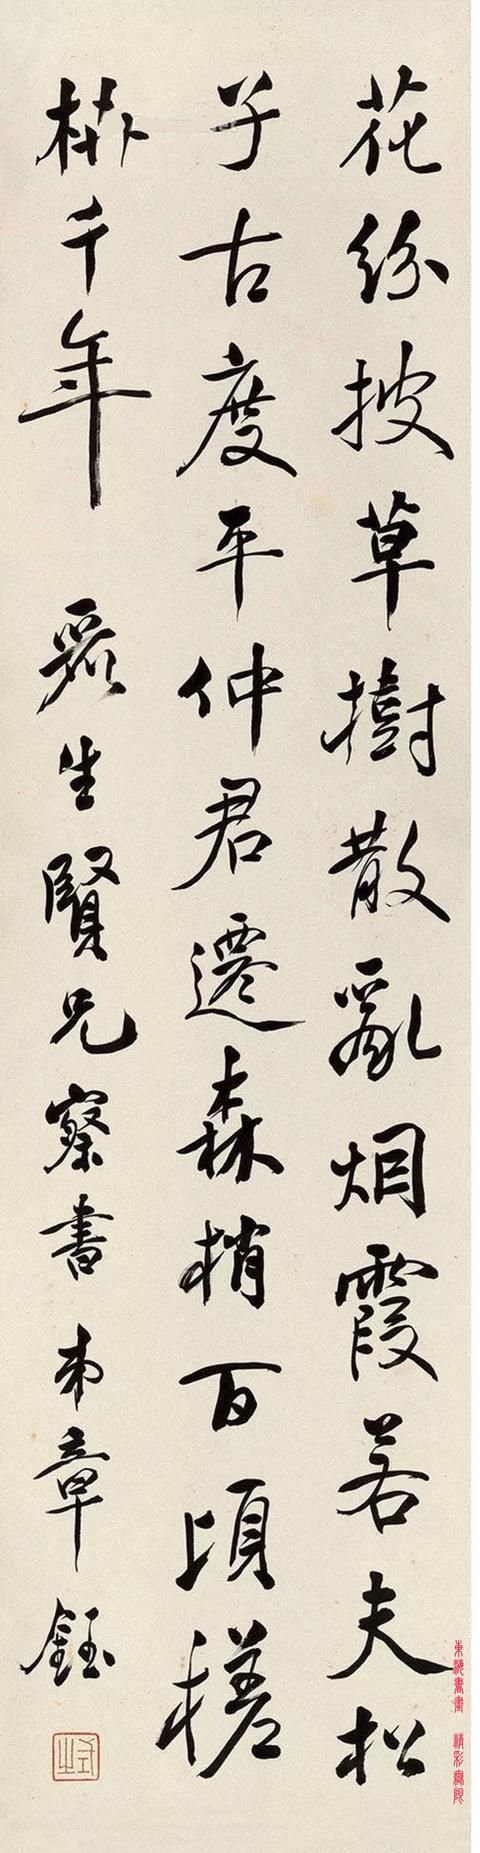 花紛披草樹散亂烟霞若夫松
子古度平仲君遷森梢百頃槎
枿千年 麗生賢兄察書 弟章鈺
式之
東海書畫 精彩無限